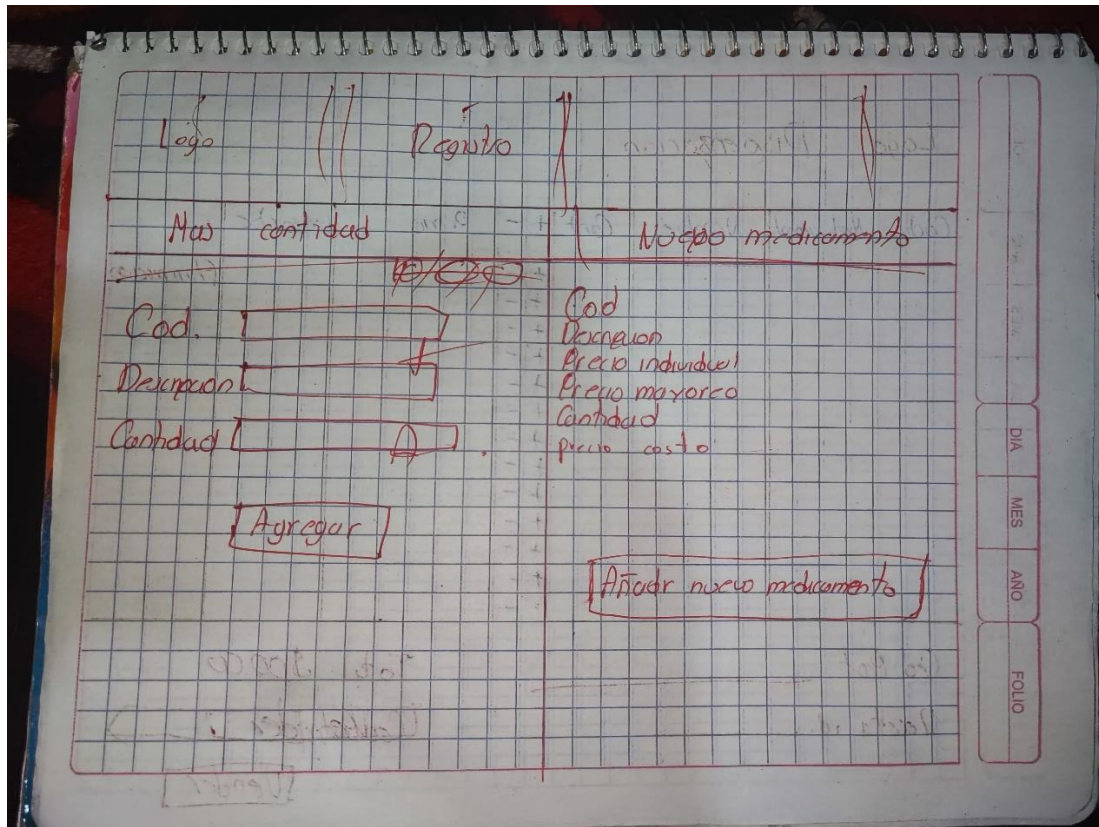 Logo Registro
Mas cantidad Nuevo medicamento
Cod.
Descripcion
Cantidad
Agregar
Cod
Descripcion
Precio individual
Precio mayoreo
Cantidad
precio costo
Añadir nuevo medicamento
DIA
MES
AÑO
FOLIO